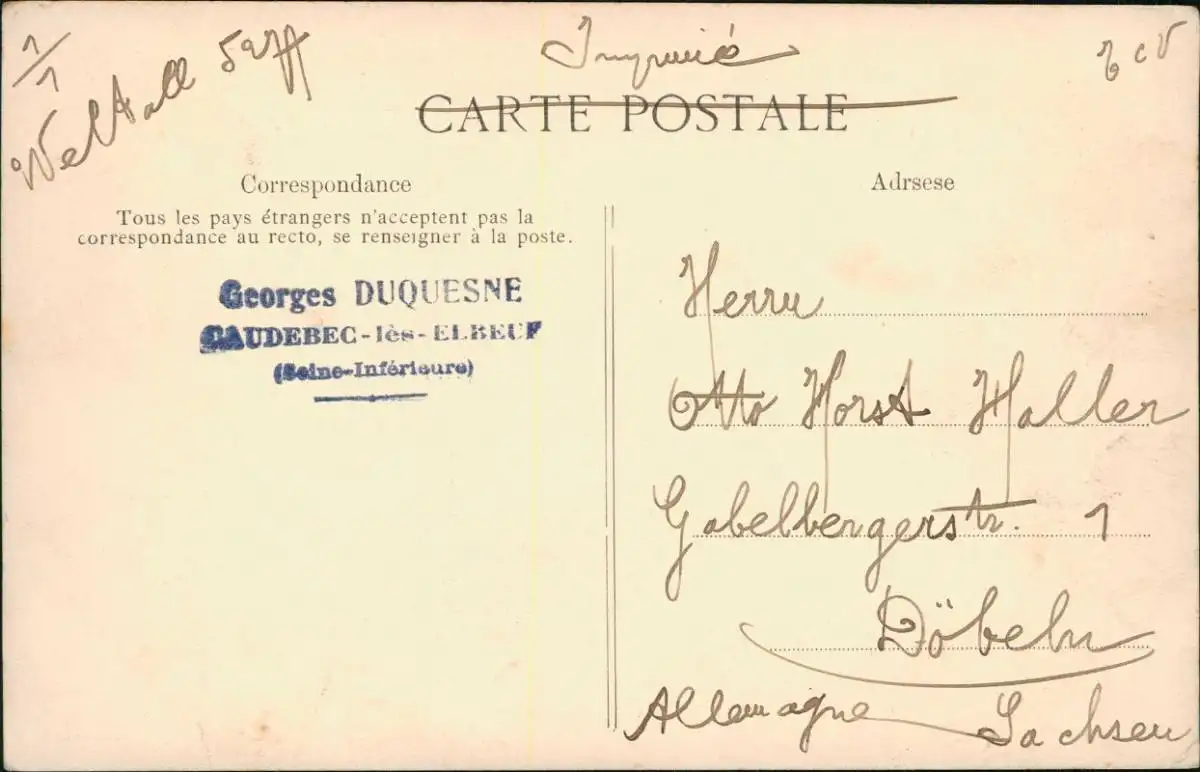 1/1
Weltall 5277
Imprimé
TCV
CARTE POSTALE
Correspondance
Adrsese
Tous les pays étrangers n'acceptent pas la
correspondance au recto, se renseigner à la poste.
Georges DUQUESNE
CAUDEBEC-lès-ELBEUF
(Seine-Inférieure)
Herrn
Otto Horst Haller
Gabelbergerstr. 1
Döbeln
Allemagne Sachsen